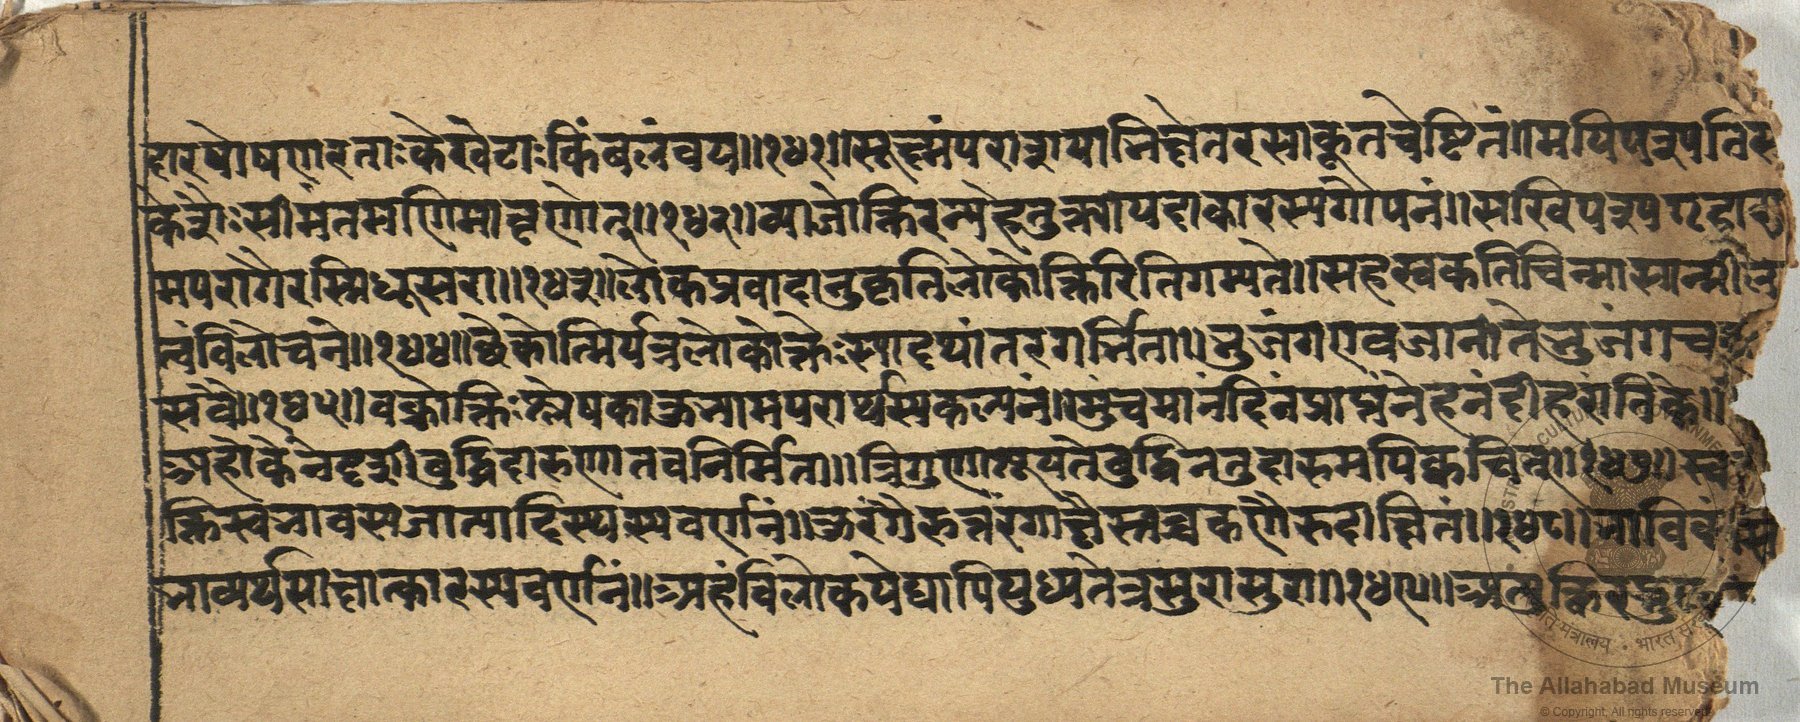 दारषोषणारताः केखेटाः किंबलंवय॥१५१॥सूक्ष्मंपराशयाभिज्ञेतरसाकूतचेष्टितं॥मयिपश्यति
केशैःसीमंतमणिमावृणोत्॥१५२॥व्याजोक्तिरन्यहेतुक्त्यायदाकारस्यगोपनं॥सखिपश्य गृहारा
मपरागैरस्मिधूसरा॥१५३॥लोकप्रवादानुकृतिर्लोकोक्तिरितिगम्यते॥सहस्वकतिचिन्मासान्मील
त्वंविलोचने॥१५४॥छेकोक्तिर्यत्रलोकोक्तेःस्यादर्थांतरगर्भिता॥भुजंगएवजानीतेभुजंगच
सखे॥१५५॥वक्रोक्तिःश्लेषकाकुभ्यामपरार्थस्यकल्पनं॥मुंचमानंदिनंप्राप्तंनेहनंदीहरांतिके॥
अहोकेनेदृशीबुद्धिर्दारुणातवनिर्मिता॥त्रिगुणाश्रूयतेबुद्धिर्नतुदारुमयीक्वचित्॥
क्तिस्वभावस्यजात्यादिस्थस्यवर्णनं॥कुरंगैरुत्तरंगाक्षैस्तब्धकर्णैरुदीक्षितं॥ भाविकं
भाव्यर्थसाक्षात्कारस्यवर्णनं॥अहंविलोकयेद्यापियुध्यंतेत्रसुरासुराः॥ अत्युक्तिरद्भुत
The Allahabad Museum
© Copyright, All rights reserved